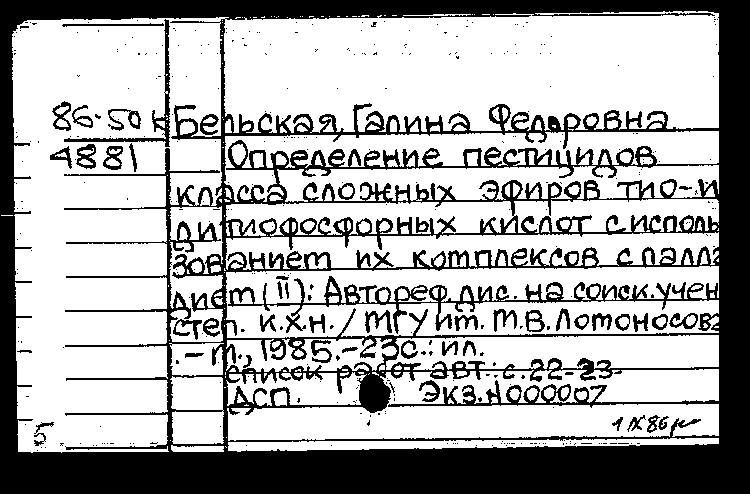 86-50к Бельская, Галина Федоровна
4881 Определение пестицидов
класса сложных эфиров тио- и
дитиофосфорных кислот с исполь
зованием их комплексов с палла
дием (II): Автореф. дис. на соиск. учен
степ. к.х.н. / МГУ им. М.В. Ломоносова
.– М., 1985.–23с.: ил.
список работ авт.: с. 22-23.
ДСП. Экз. N000007
5 1 IX 86